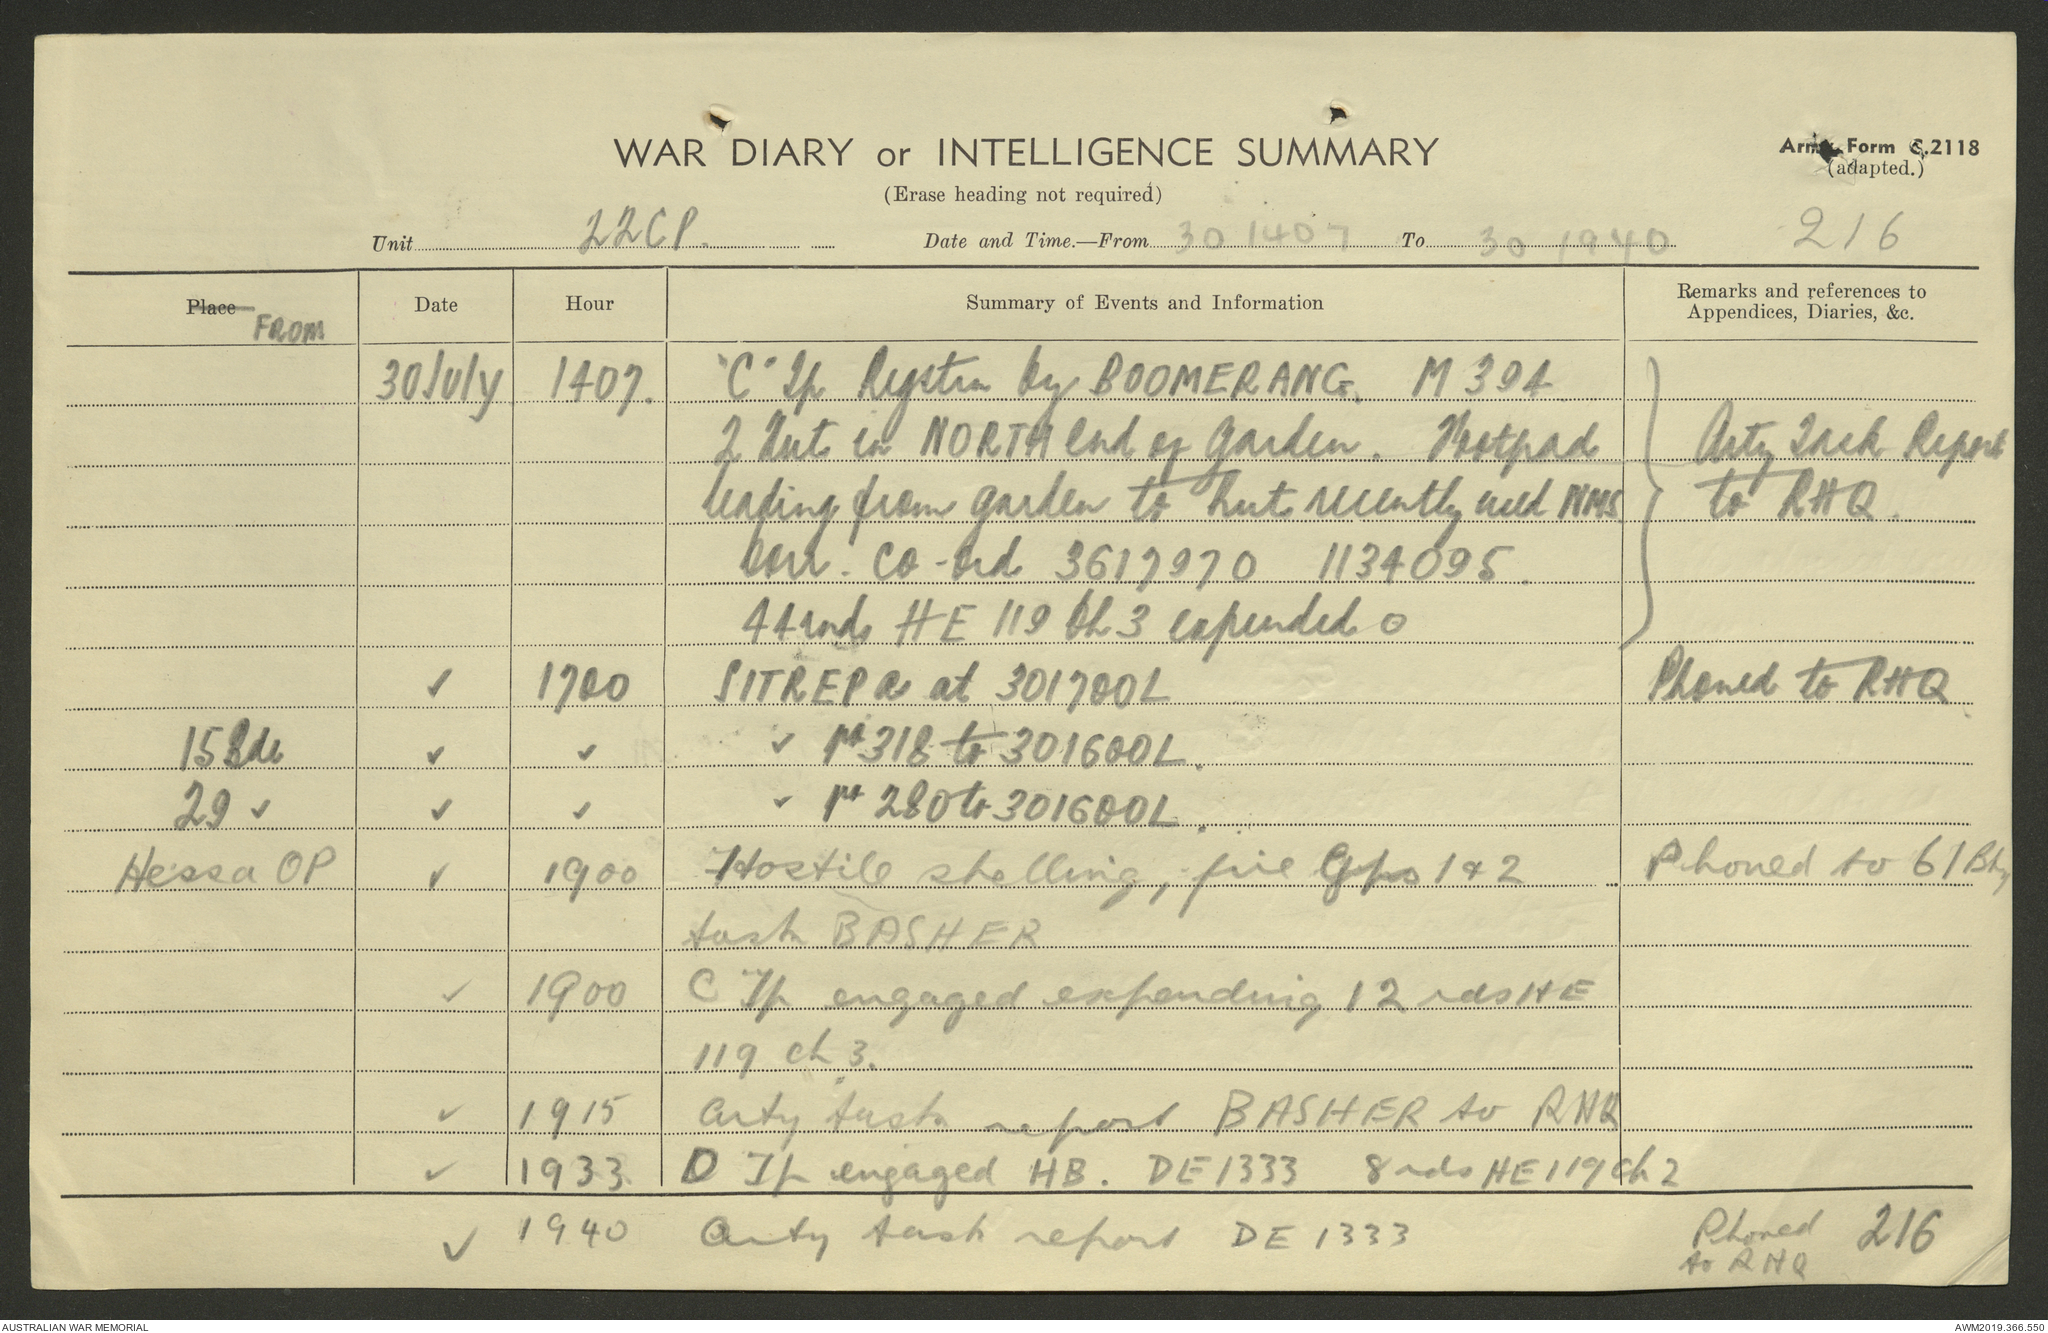 WAR DIARY or INTELLIGENCE SUMMARY
Army Form C.2118
(adapted.)
(Erase heading not required)
Unit 22CP. Date and Time.—From 30 1407 To 30 1940 216
Place FROM Date Hour Summary of Events and Information Remarks and references to Appendices, Diaries, &c.
30 July 1407. "C" Tp Regstn by BOOMERANG. M 394
2 Hut in NORTH end of garden. Footpad Arty Task Report
leading from garden to hut recently used NMS to RHQ.
Corr. Co-ord 3617970 1134095.
44 rnds HE 119 Ch 3 expended o
✓ 1700 SITREP as at 301700L Phoned to RHQ
15 Bde ✓ ✓ ✓ 318 to 301600L.
29 ✓ ✓ ✓ ✓ 280 to 301600L.
Hessa OP ✓ 1900 Hostile shelling, fire Gps 1 & 2 Phoned to 61 Bty
task BASHER
✓ 1900 C Tp engaged expending 12 rds HE
119 ch 3.
✓ 1915 Arty task report BASHER to RHQ
✓ 1933 D Tp engaged HB. DE1333 8 rds HE 119 ch 2
✓ 1940 Arty task report DE 1333 Phoned to RHQ 216
AUSTRALIAN WAR MEMORIAL AWM2019.366.550